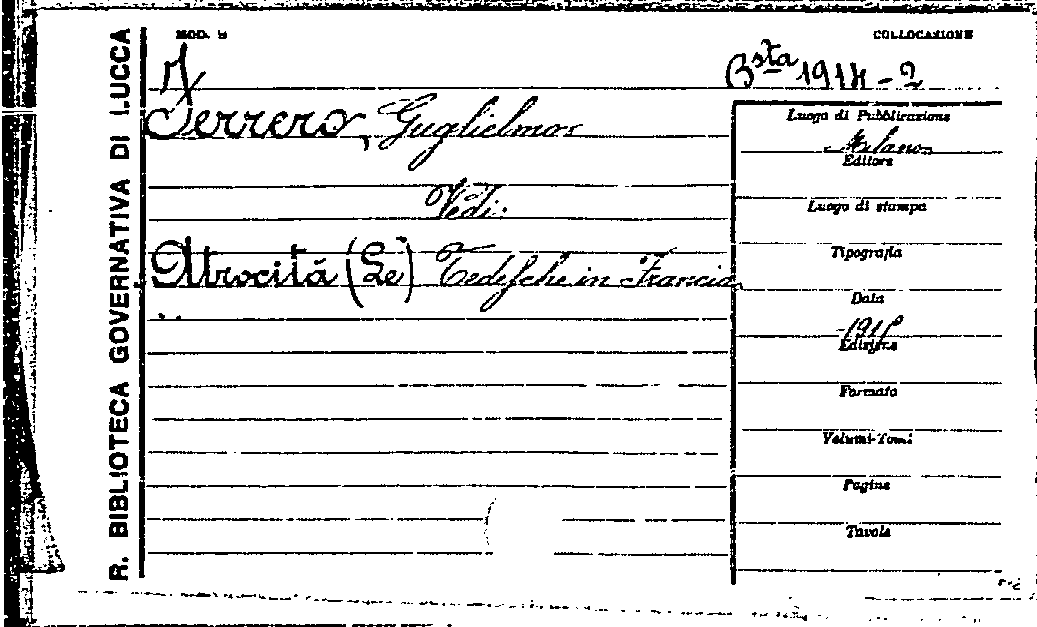 R. BIBLIOTECA GOVERNATIVA DI LUCCA
MOD. 9
COLLOCAZIONE
Bsta 1914-2
Ferrero, Guglielmo
Vedi:
Atrocità (Le) Tedesche in Francia
Luogo di Pubblicazione
Milano
Editore
Luogo di stampa
Tipografia
Data
Edizione
Formato
Volumi-Tomi
Pagine
Tavole